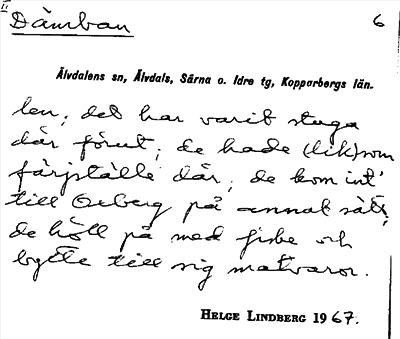 II
Dåmban 6
Älvdalens sn, Älvdals, Särna o. Idre tg, Kopparbergs län.
len; det har varit stuga
där förut; de hade (lik)som
färjställe där; de kom int'
till Oxberg på annat sätt;
de höll på med fiske och
bytte till sig matvaror.
HELGE LINDBERG 1967.